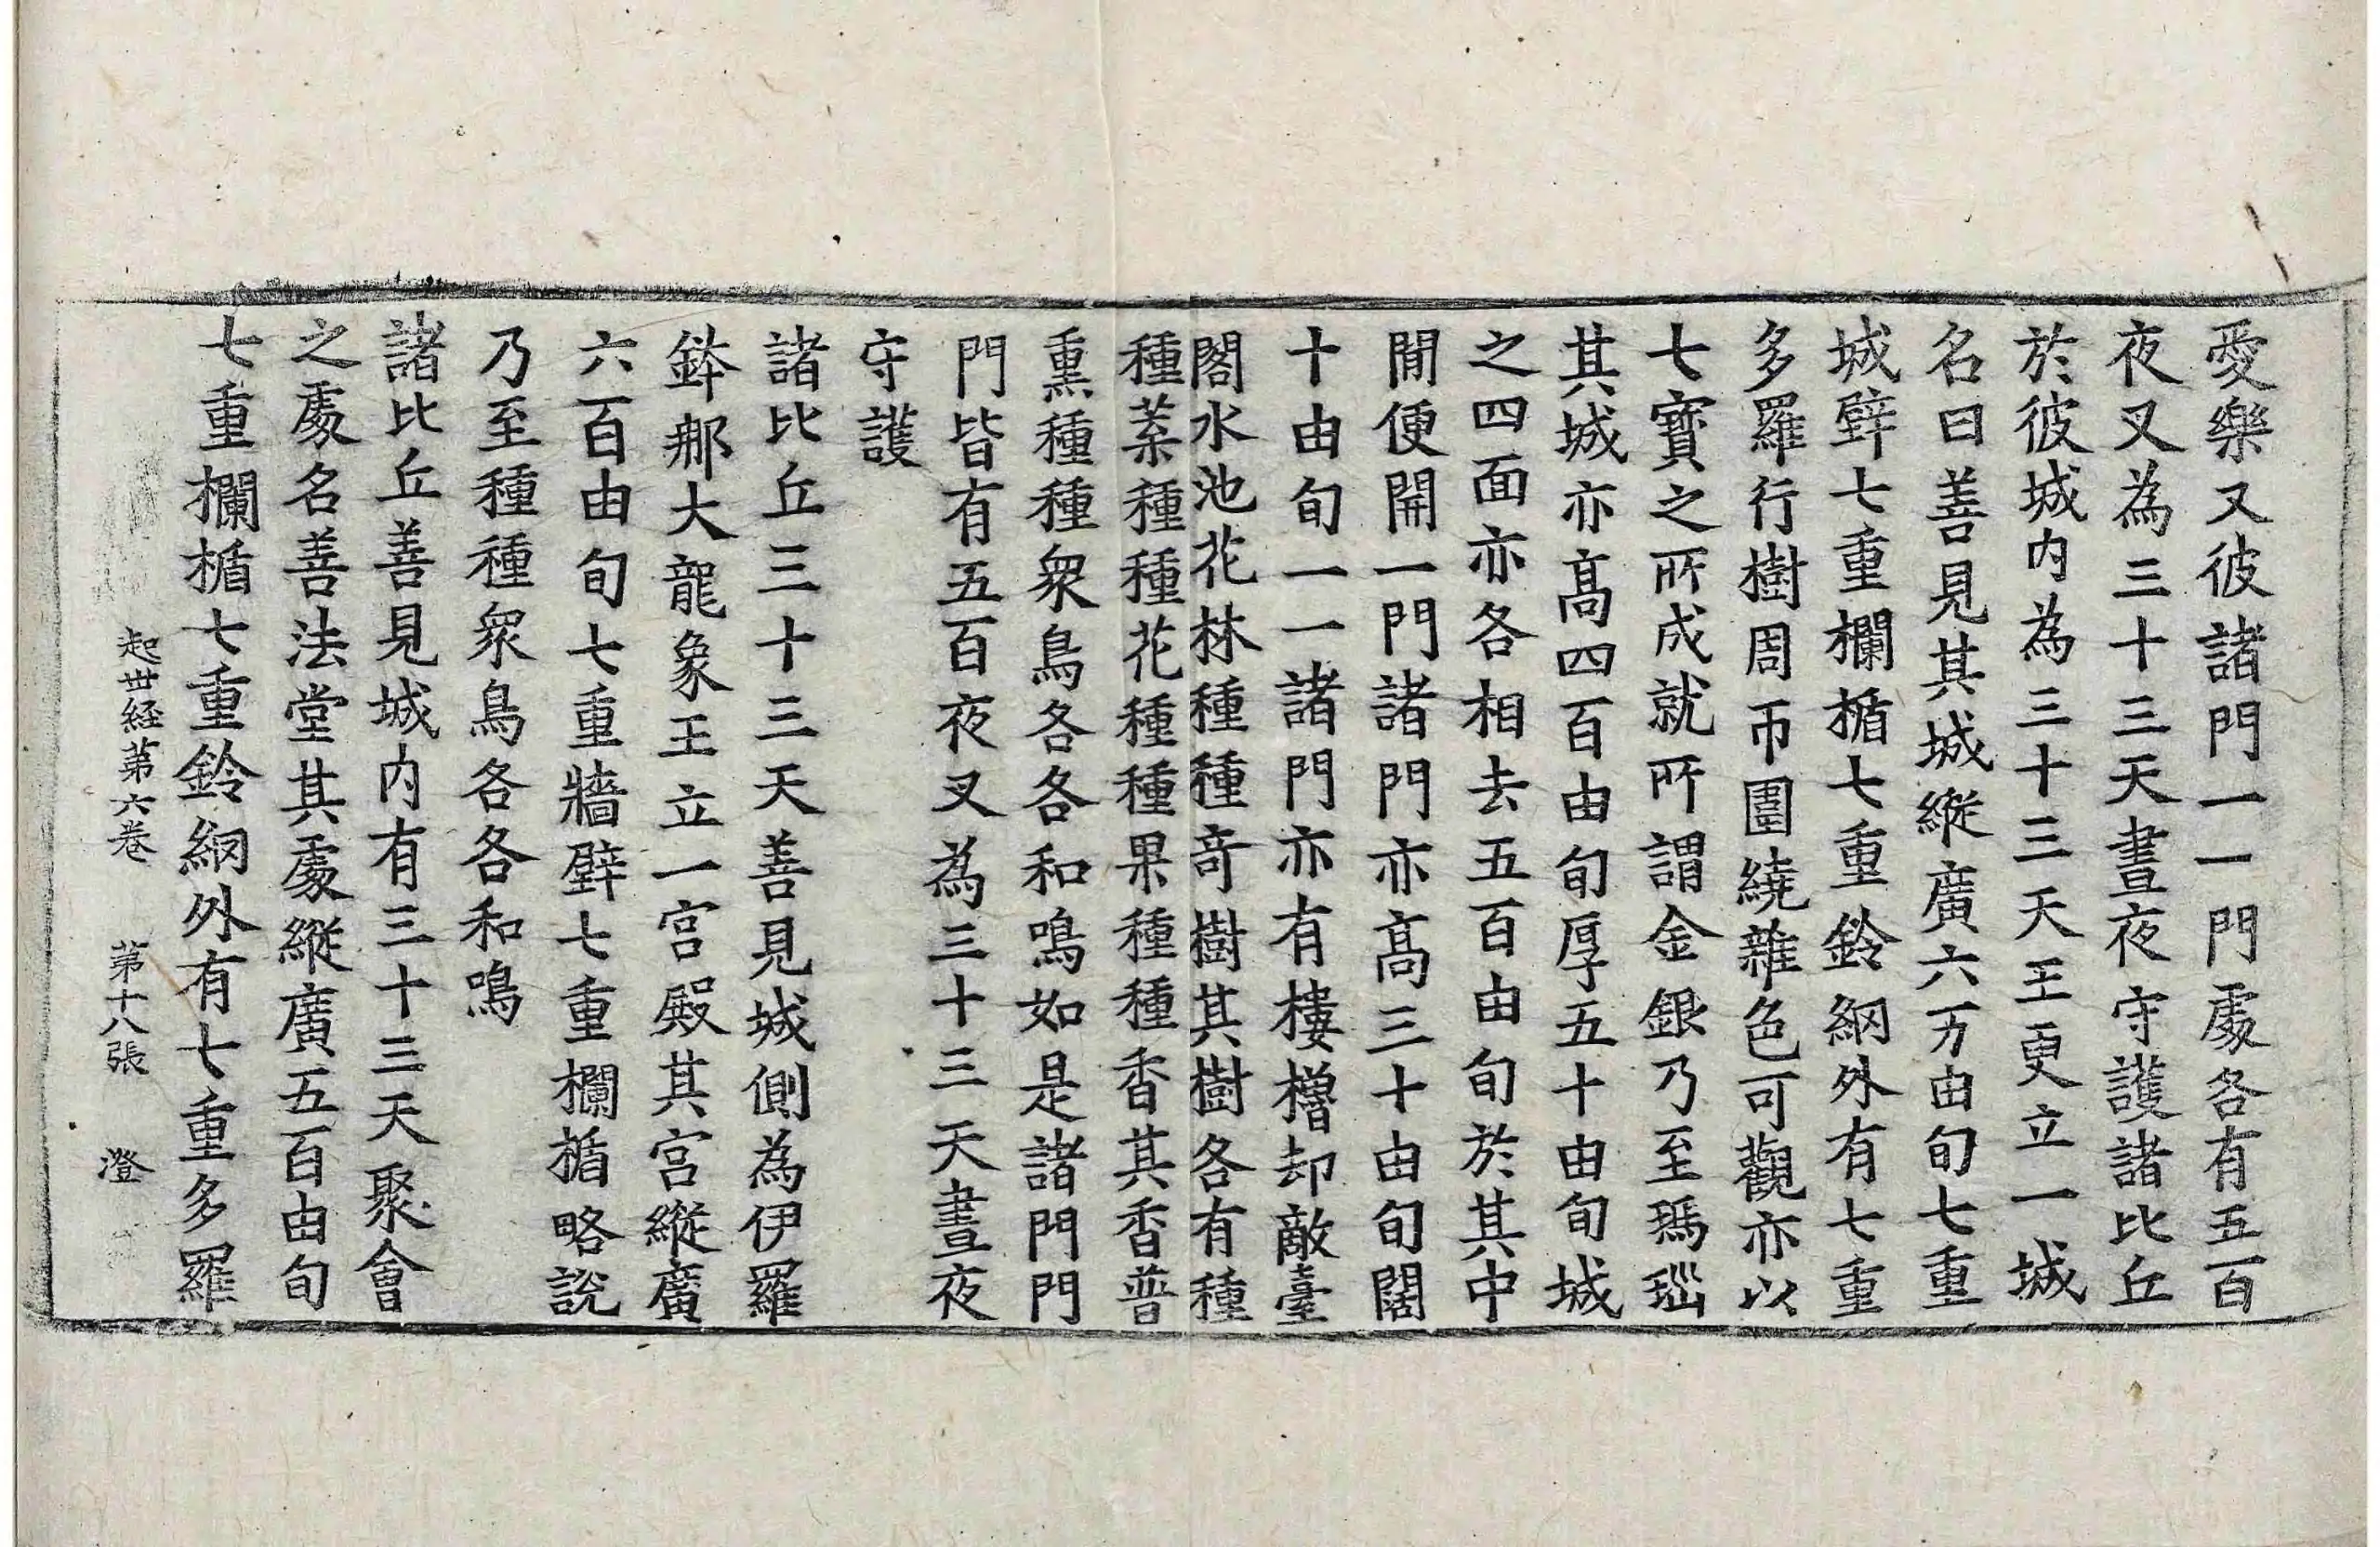 愛樂又彼諸門一一門處各有五百
夜叉為三十三天晝夜守護諸比丘
於彼城内為三十三天王更立一城
名曰善見其城縱廣六万由旬七重
城壁七重欄楯七重鈴網外有七重
多羅行樹周帀圍繞雜色可觀亦以
七寶之所成就所謂金銀乃至瑪瑙
其城亦髙四百由旬厚五十由旬城
之四面亦各相去五百由旬於其中
閒便開一門諸門亦髙三十由旬闊
十由旬一一諸門亦有樓櫓却敵臺
閣水池花林種種奇樹其樹各有種
種葉種種花種種果種種香其香普
熏種種衆鳥各各和鳴如是諸門門
門皆有五百夜叉為三十三天晝夜
守護
諸比丘三十三天善見城側為伊羅
鉢那大龍象王立一宮殿其宮縱廣
六百由旬七重牆壁七重欄楯略說
乃至種種衆鳥各各和鳴
諸比丘善見城内有三十三天聚會
之處名善法堂其處縱廣五百由旬
七重欄楯七重鈴網外有七重多羅
起世経第六卷 第十八張 澄